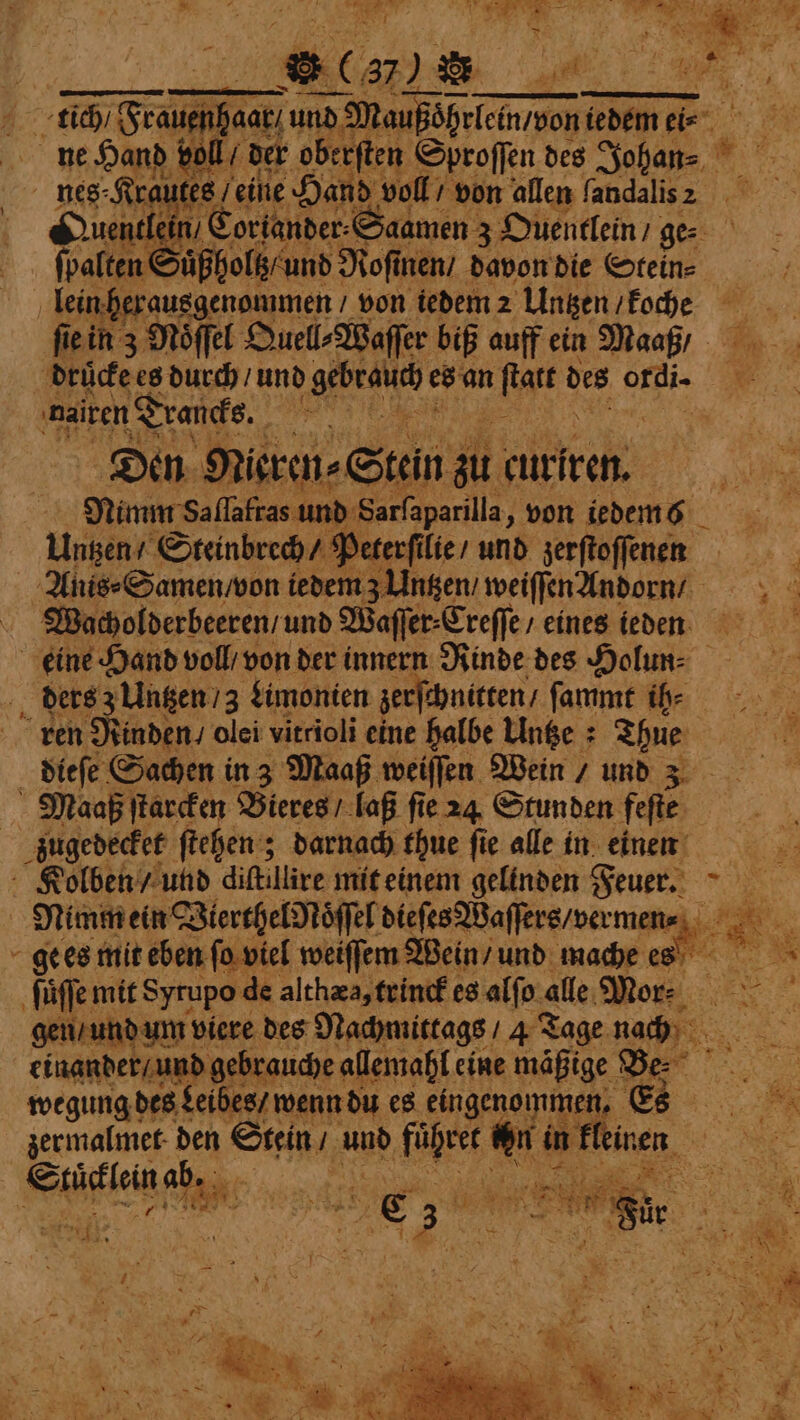 ( 37 )
tich/ Frauenhaar/ und Maußöhrlein/von iedem ei⸗
ne Hand voll / der obersten Sprossen des Johan⸗
nes⸗Krautes / eine Hand voll / von allen sandalis 2
Quentlein/ Coriander⸗Saamen 3 Quentlein / ge⸗
spalten Süßholtz/ und Rosinen/ davon die Stein⸗
lein herausgenommen / von iedem 2 Untzen /koche
sie in 3 Nössel Quell⸗Wasser biß auff ein Maaß/
drücke es durch / und gebrauch es an statt des ordi-
nairen Trancks.
Den Nieren⸗Stein zu curiren.
Nimm Sassafras und Sarsaparilla, von iedem 6
Untzen / Steinbrech / Petersilie / und zerstossenen
Anis⸗Samen/von iedem 3 Untzen/ weissen Andorn/
Wacholderbeeren/ und Wasser⸗Cresse / eines ieden
eine Hand voll/ von der innern Rinde des Holun⸗
ders 3 Untzen / 3 Limonien zerschnitten/ sammt ih⸗
ren Rinden / olei vitrioli eine halbe Untze : Thue
diese Sachen in 3 Maaß weissen Wein / und 3
Maaß starcken Bieres / laß sie 24 Stunden feste
zugedecket stehen ; darnach thue sie alle in einen
Kolben / und distillire mit einem gelinden Feuer.
Nimm ein Vierthel Nössel dieses Wassers/vermen⸗
ge es mit eben so viel weissem Wein / und mache es
süsse mit Syrupo de althæa, trinck es also alle Mor⸗
gen/ und um viere des Nachmittags / 4 Tage nach
einander/ und gebrauche allemahl eine mäßige Be⸗
wegung des Leibes/ wenn du es eingenommen. Es
zermalmet den Stein / und führet ihn in kleinen
Stücklein ab.
C 3 Für